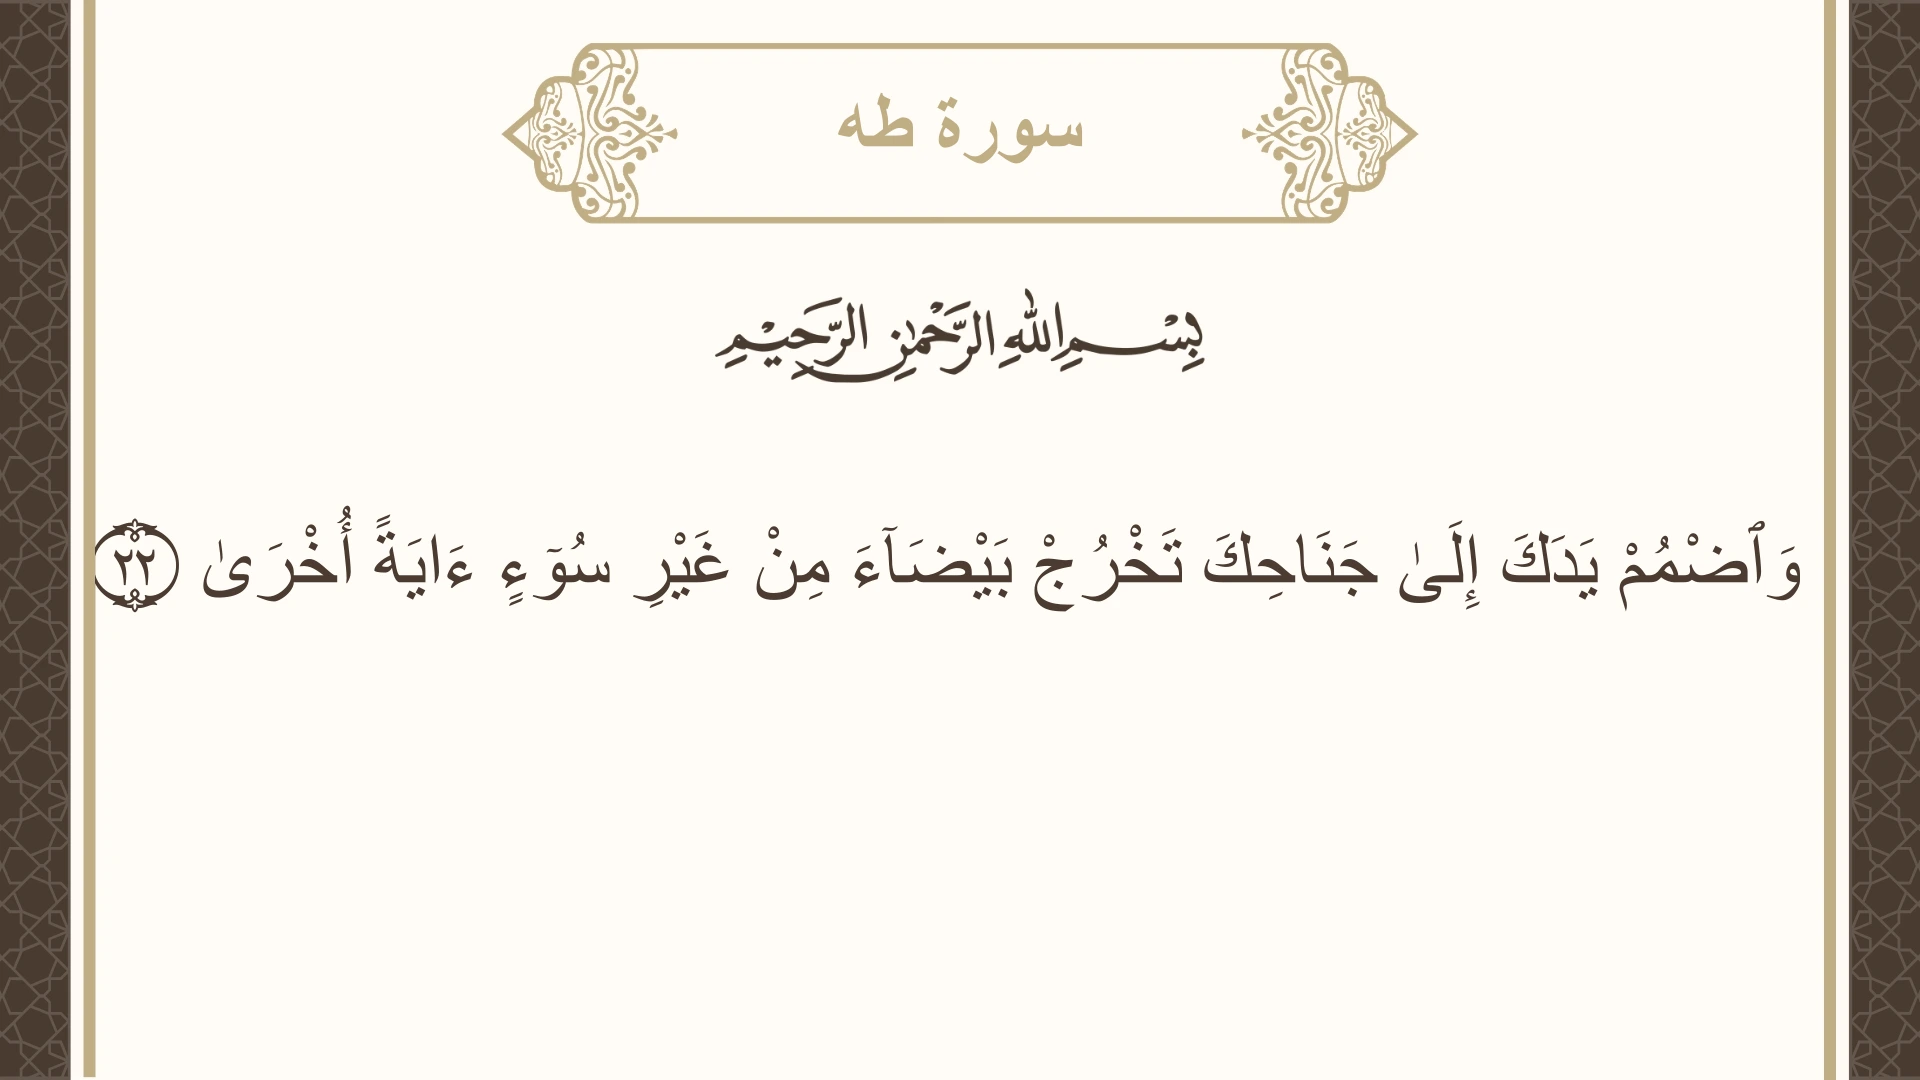 سورة طه
بِسْمِ اللهِ الرَّحْمٰنِ الرَّحِيْمِ
وَٱضْمُمْ يَدَكَ إِلَىٰ جَنَاحِكَ تَخْرُجْ بَيْضَآءَ مِنْ غَيْرِ سُوٓءٍ ءَايَةً أُخْرَىٰ ٢٢